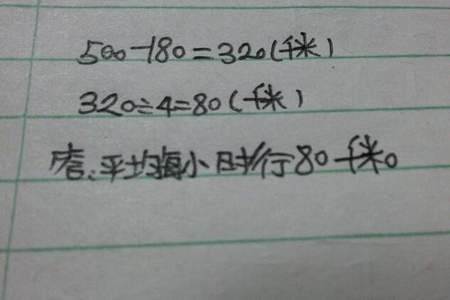 500-180=320(千米)
320÷4=80(千米)
答:平均每小时行80千米。